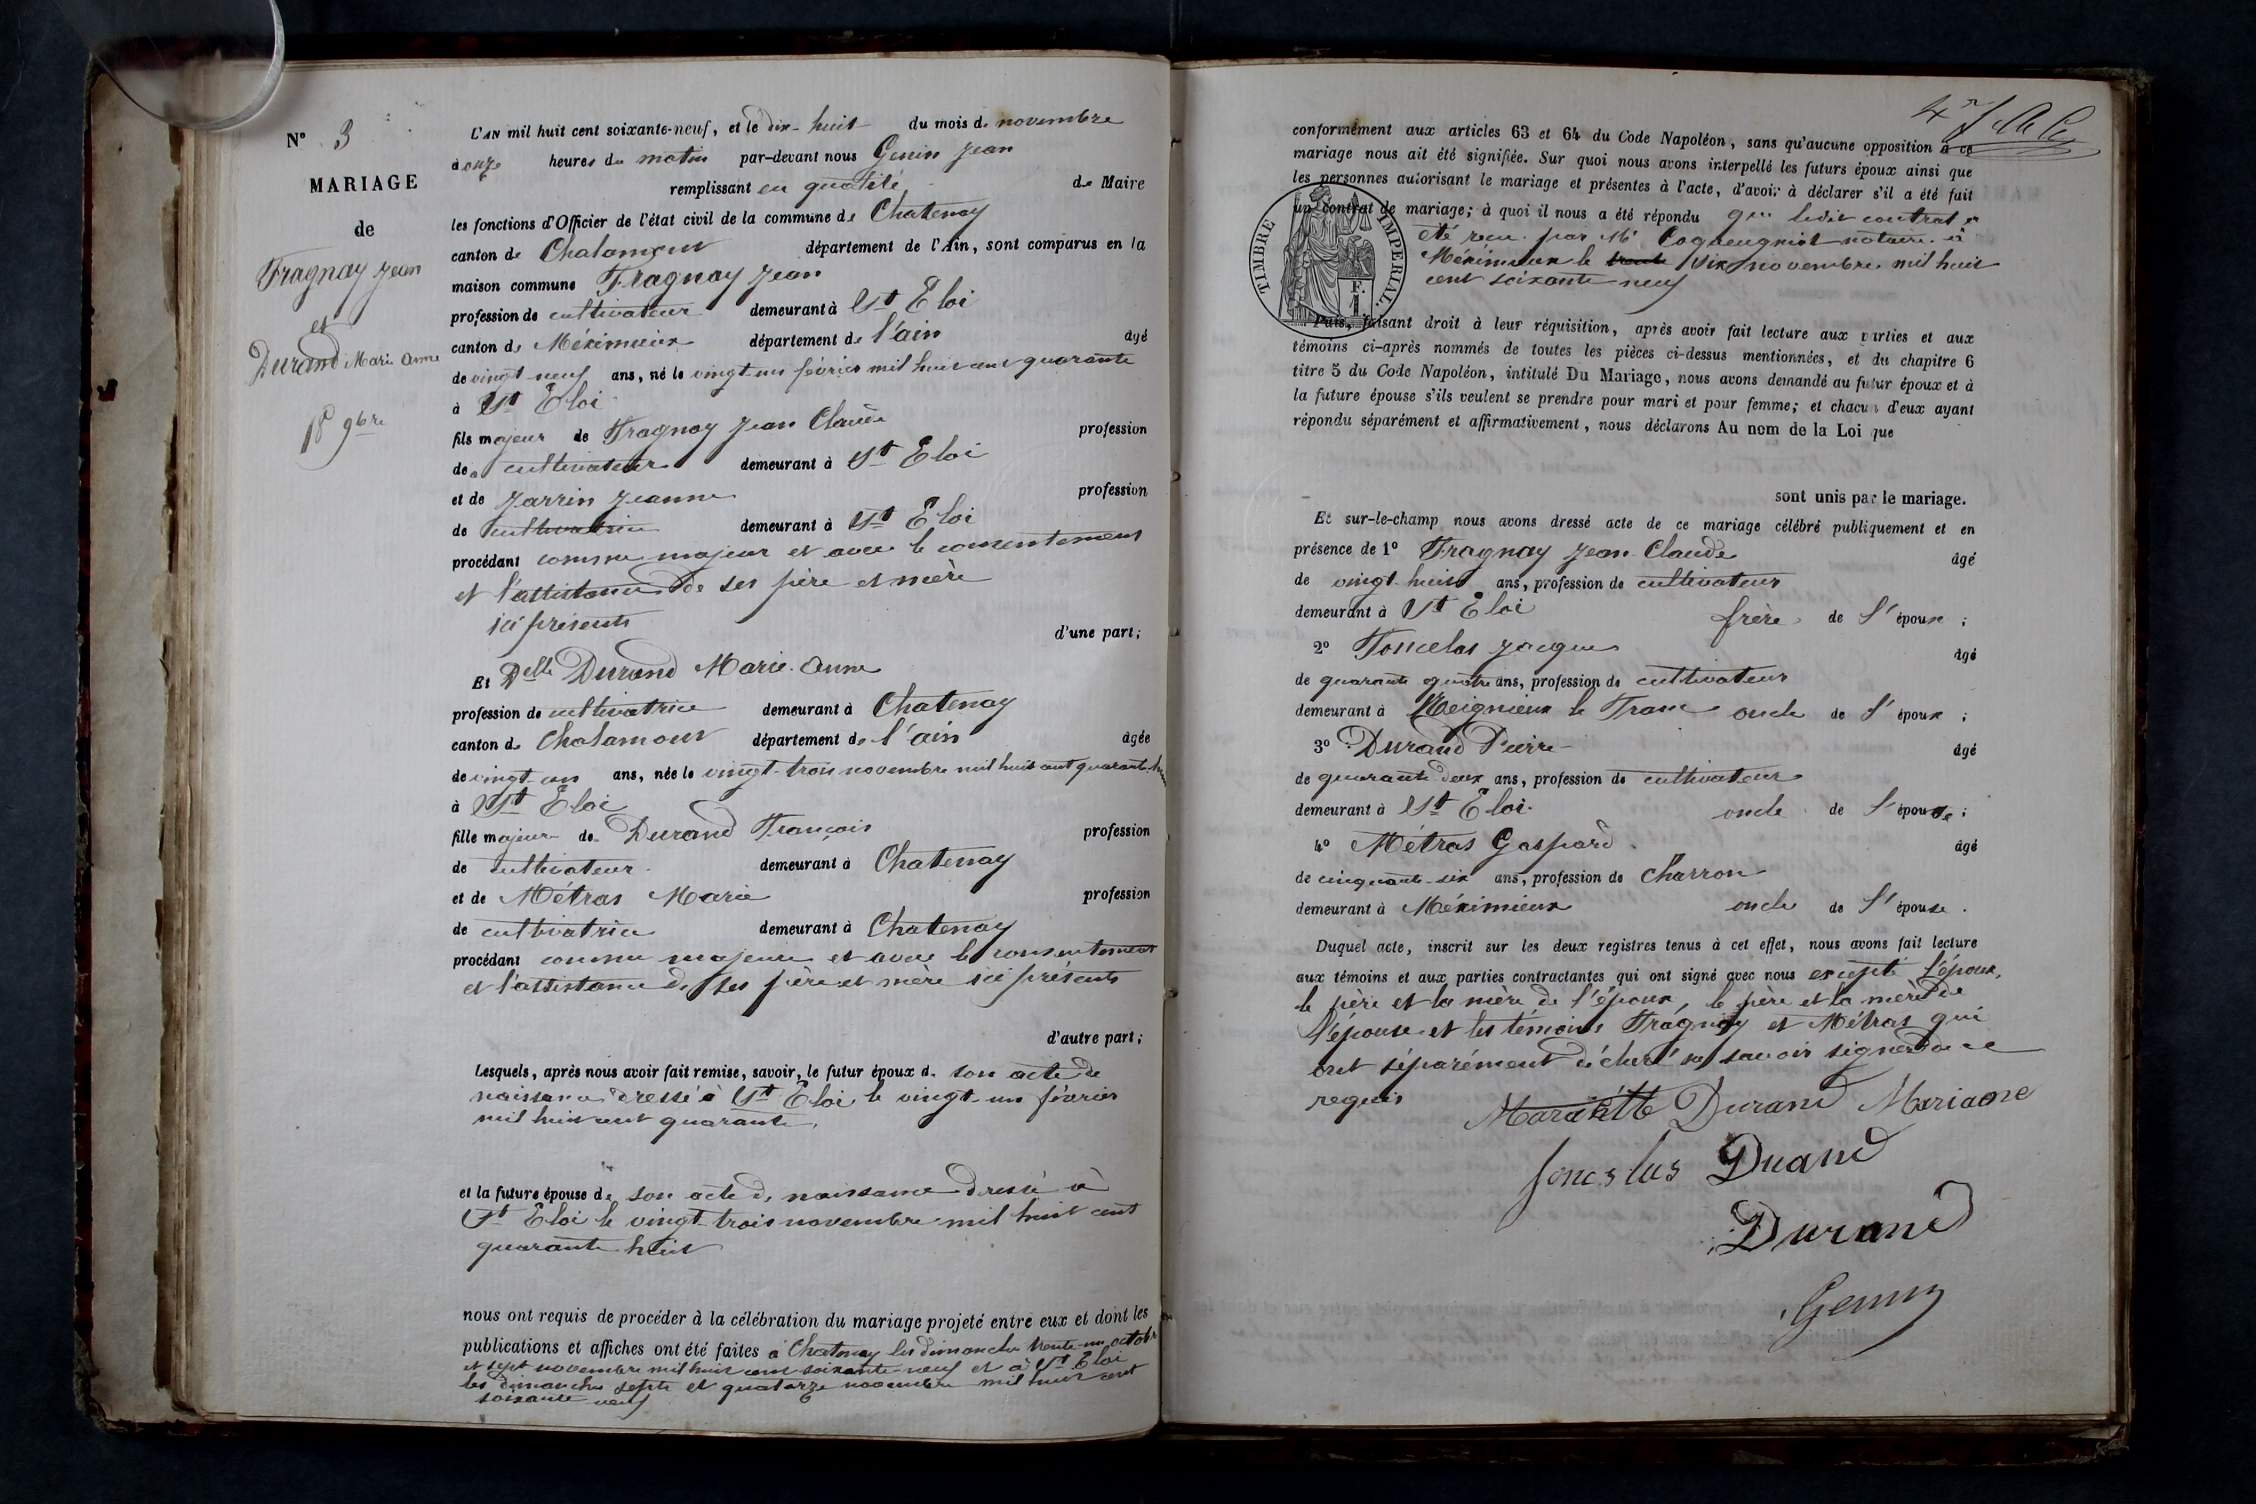 N° 3
MARIAGE
de
Fragnay Jean
et
Durand Marie Anne
18 9bre
L'AN mil huit cent soixante-neuf, et le dix-huit du mois de novembre
à onze heures du matin par-devant nous Genin Jean
remplissant en qualité de Maire
les fonctions d'Officier de l'état civil de la commune de Chatenay
canton de Chalamont département de l'Ain, sont comparus en la
maison commune Fragnay Jean
profession de cultivateur demeurant à St Eloi
canton de Méximieux département de l'ain âgé
de vingt-neuf ans, né le vingt-un février mil huit cent quarante
à St Eloi
fils majeur de Fragnay Jean Claude profession
de cultivateur demeurant à St Eloi
et de Jarrin Jeanne profession
de cultivatrice demeurant à St Eloi
procédant comme majeur et avec le consentement
et l'assistance de ses père et mère
ici présents
d'une part;
Et Delle Durand Marie-Anne
profession de cultivatrice demeurant à Chatenay
canton de Chalamont département de l'ain âgée
de vingt-un ans, née le vingt-trois novembre mil huit cent quarante-huit
à St Eloi
fille majeure de Durand François profession
de cultivateur demeurant à Chatenay
et de Métras Marie profession
de cultivatrice demeurant à Chatenay
procédant comme majeure et avec le consentement
et l'assistance de ses père et mère ici présents
d'autre part;
Lesquels, après nous avoir fait remise, savoir, le futur époux de son acte de
naissance dressé à St Eloi le vingt-un février
mil huit cent quarante,
et la future épouse de son acte de naissance dressé à
St Eloi le vingt-trois novembre mil huit cent
quarante huit
nous ont requis de procéder à la célébration du mariage projeté entre eux et dont les
publications et affiches ont été faites à Chatenay les dimanches trente-un octobre
et sept novembre mil huit cent soixante-neuf et à St Eloi
les dimanches sept et quatorze novembre mil huit cent
soixante neuf
conformément aux articles 63 et 64 du Code Napoléon, sans qu'aucune opposition à ce
mariage nous ait été signifiée. Sur quoi nous avons interpellé les futurs époux ainsi que
les personnes autorisant le mariage et présentes à l'acte, d'avoir à déclarer s'il a été fait
un contrat de mariage; à quoi il nous a été répondu que ledit contrat a
été reçu par Me notaire à
Méximieux le trente dix novembre mil huit
cent soixante neuf
TIMBRE IMPERIAL.
1 F.
Puis, faisant droit à leur réquisition, après avoir fait lecture aux parties et aux
témoins ci-après nommés de toutes les pièces ci-dessus mentionnées, et du chapitre 6
titre 5 du Code Napoléon, intitulé Du Mariage, nous avons demandé au futur époux et à
la future épouse s'ils veulent se prendre pour mari et pour femme; et chacun d'eux ayant
répondu séparément et affirmativement, nous déclarons Au nom de la Loi que
sont unis par le mariage.
Et sur-le-champ nous avons dressé acte de ce mariage célébré publiquement et en
présence de 1° Fragnay Jean-Claude âgé
de vingt-huit ans, profession de cultivateur
demeurant à St Eloi frère de l'époux ;
2° Joncelas Jacques âgé
de quarante quatre ans, profession de cultivateur
demeurant à le Franc oncle de l'époux ;
3° Durand Pierre âgé
de quarante deux ans, profession de cultivateur
demeurant à St Eloi oncle de l'épouse ;
4° Métras Gaspard âgé
de cinquante-six ans, profession de charron
demeurant à Méximieux oncle de l'épouse.
Duquel acte, inscrit sur les deux registres tenus à cet effet, nous avons fait lecture
aux témoins et aux parties contractantes qui ont signé avec nous excepté l'époux,
le père et la mère de l'époux, le père et la mère de
l'épouse et les témoins Fragnay et Métras qui
ont séparément déclaré ne savoir signer de ce
requis
Durand Mariane
Joncslas Duand
Durand
Genin